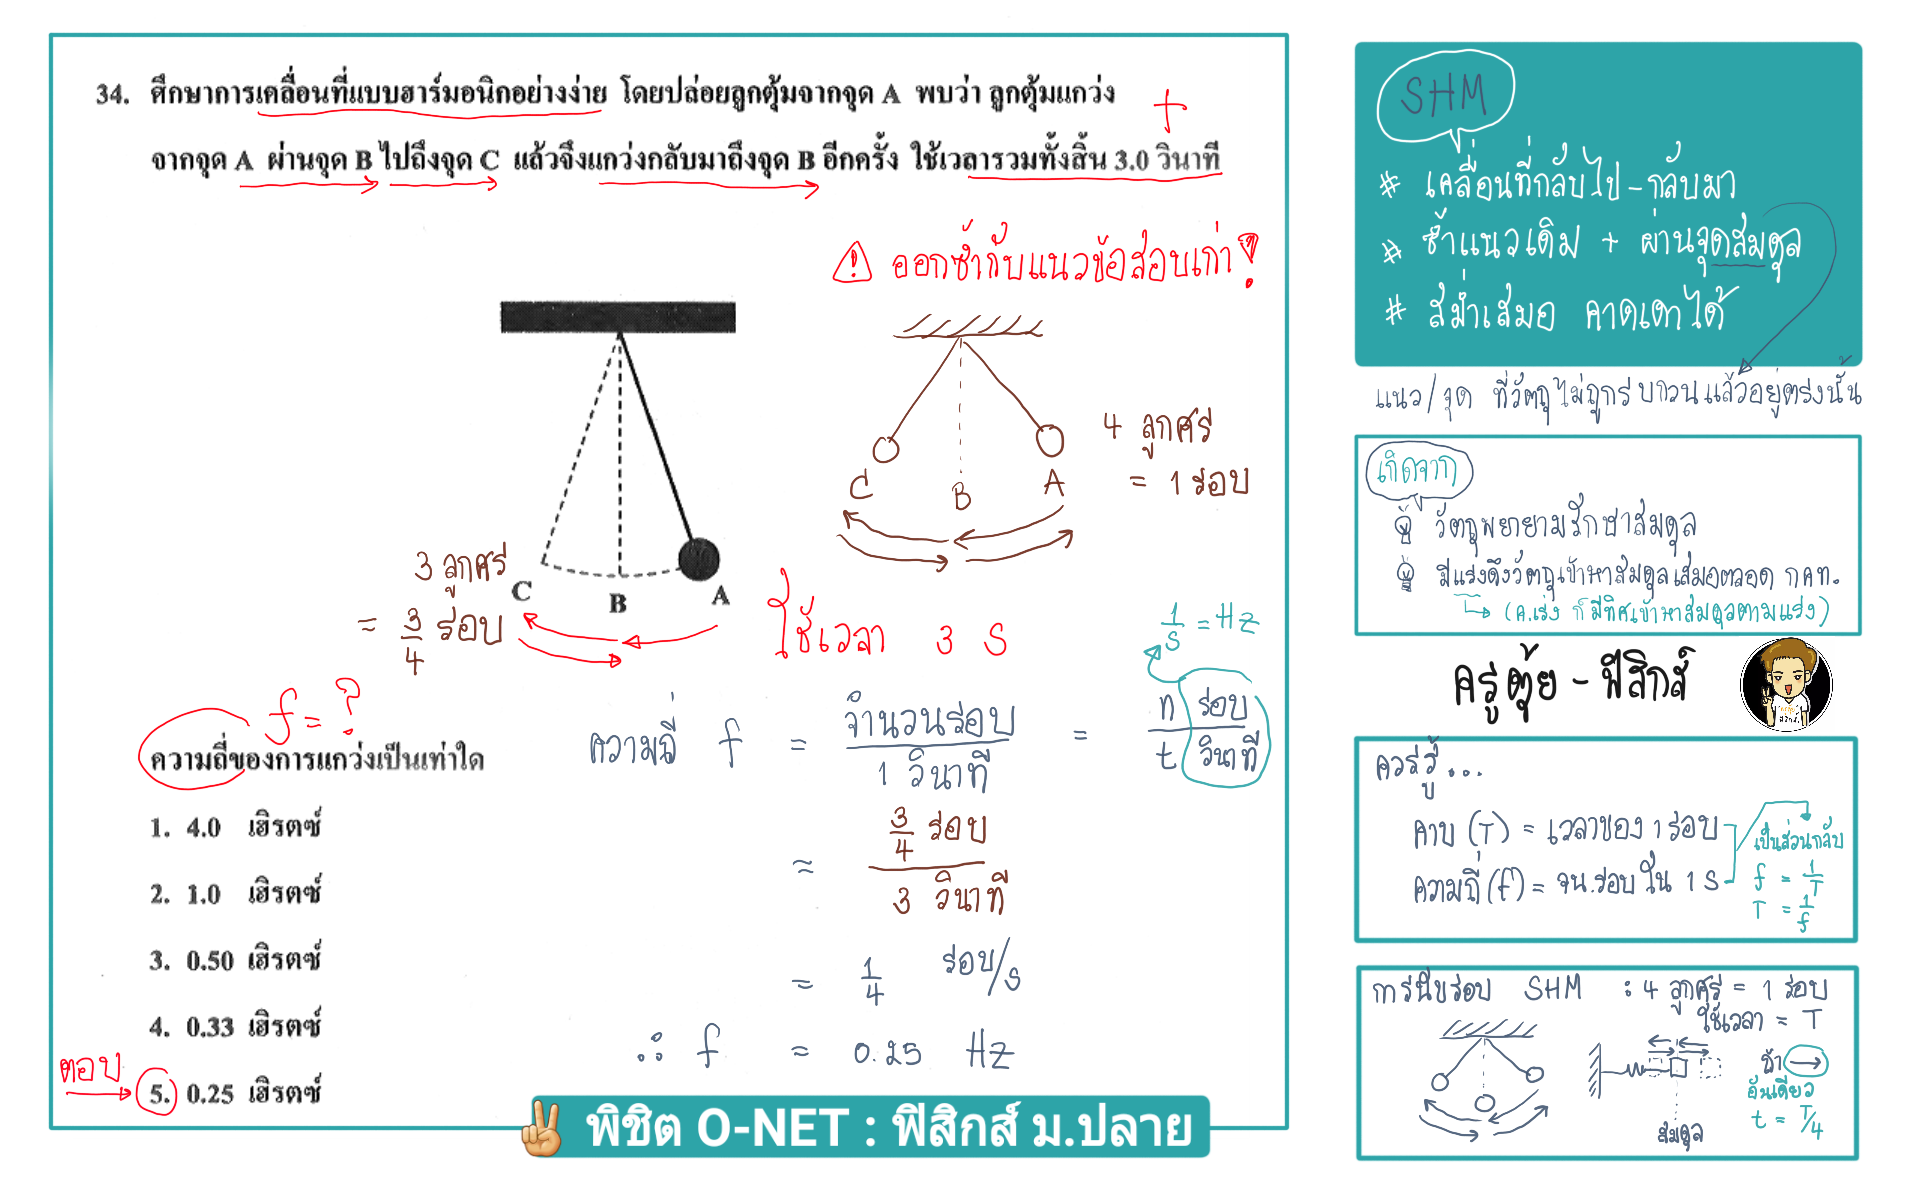 34. ศึกษาการเคลื่อนที่แบบฮาร์มอนิกอย่างง่าย โดยปล่อยลูกตุ้มจากจุด A พบว่า ลูกตุ้มแกว่ง
จากจุด A ผ่านจุด B ไปถึงจุด C แล้วจึงแกว่งกลับมาถึงจุด B อีกครั้ง ใช้เวลารวมทั้งสิ้น 3.0 วินาที
t
⚠ ออกซ้ำกับแนวข้อสอบเก่า!
C B A
4 ลูกศร
= 1 รอบ
C B A
3 ลูกศร
= 3/4 รอบ
ใช้เวลา 3 S
f = ?
ความถี่ของการแกว่งเป็นเท่าใด
1. 4.0 เฮิรตซ์
2. 1.0 เฮิรตซ์
3. 0.50 เฮิรตซ์
4. 0.33 เฮิรตซ์
ตอบ
5. 0.25 เฮิรตซ์
1/S = Hz
ความถี่ f = จำนวนรอบ / 1 วินาที = n รอบ / t วินาที
= 3/4 รอบ / 3 วินาที
= 1/4 รอบ/s
∴ f = 0.25 Hz
✌ พิชิต O-NET : ฟิสิกส์ ม.ปลาย
SHM
# เคลื่อนที่กลับไป-กลับมา
# ซ้ำแนวเดิม + ผ่านจุดสมดุล
# สม่ำเสมอ คาดเดาได้
แนว/จุด ที่วัตถุไม่ถูกรบกวนแล้วอยู่ตรงนั้น
เกิดจาก
วัตถุพยายามรักษาสมดุล
มีแรงดึงวัตถุเข้าหาสมดุลเสมอตลอด กคท.
(ค.เร่ง ก็มีทิศเข้าหาสมดุลตามแรง)
ครูตุ้ย - ฟิสิกส์
ควรรู้...
คาบ (T) = เวลาของ 1 รอบ
ความถี่ (f) = จน.รอบใน 1 S
เป็นส่วนกลับ
f = 1/T
T = 1/f
การนับรอบ SHM : 4 ลูกศร = 1 รอบ
ใช้เวลา = T
ถ้า →
อันเดียว
t = T/4
สมดุล